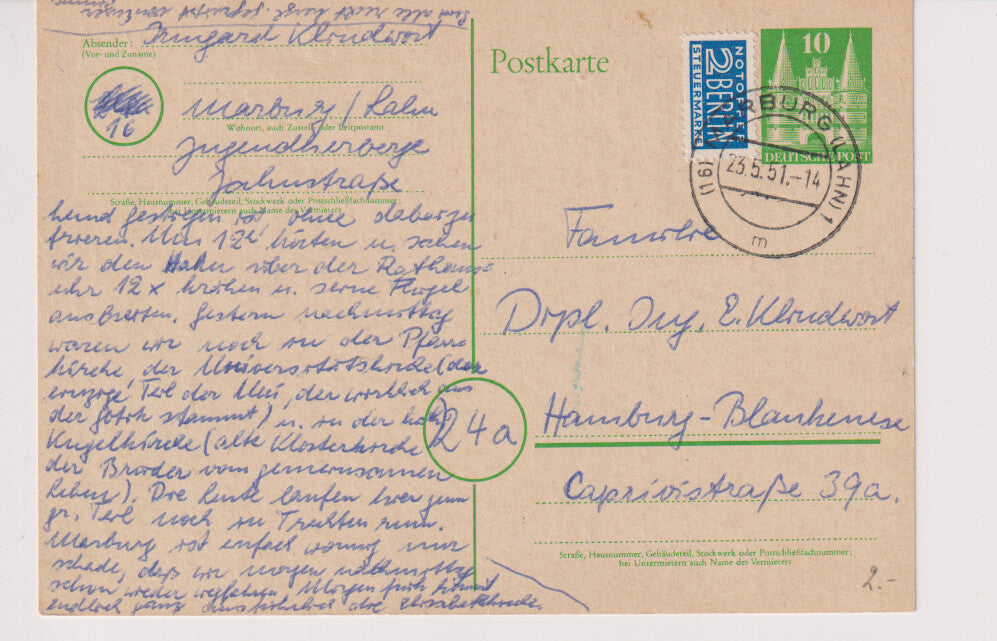 Sind alle nicht
Absender:
(Vor- und Zuname)
Irmgard Klindwort
16
Marburg / Lahn
Wohnort, auch Zustell- oder Leitpostamt
Jugendherberge
Jahnstraße
Straße, Hausnummer, Gebäudeteil, Stockwerk oder Postschließfachnummer;
bei Untermietern auch Name des Vermieters
hund gestiegen ist, ohne dabei zu
frieren. Um 12h hörten u. sahen
wir den Hahn über der Rathaus
uhr 12 x krähen u. seine Flügel
ausbreiten. Gestern nachmittag
waren wir noch in der Pfarr
kirche, der Universitätskirche (der
einzige Teil der Uni, der wirklich aus
der Gotik stammt) u. in der kath.
Kugelkirche (alte Klosterkirche
der Brüder vom gemeinsamen
Leben). Die Leute laufen hier zum
gr. Teil noch in Trachten rum.
Marburg ist einfach wonnig nur
schade, daß wir morgen nachmittag
schon wieder wegfahren. Morgen früh
endlich ganz ausführlich die Elisabethkirche.
Postkarte
NOTOPFER
2 BERLIN
STEUERMARKE
10
DEUTSCHE POST
(16) MARBURG (LAHN) 1
23.5.51.-14
m
Familie
Dipl. Ing. E. Klindwort
24a
Hamburg-Blankenese
Caprivistraße 39a.
Straße, Hausnummer, Gebäudeteil, Stockwerk oder Postschließfachnummer;
bei Untermietern auch Name des Vermieters
2.-